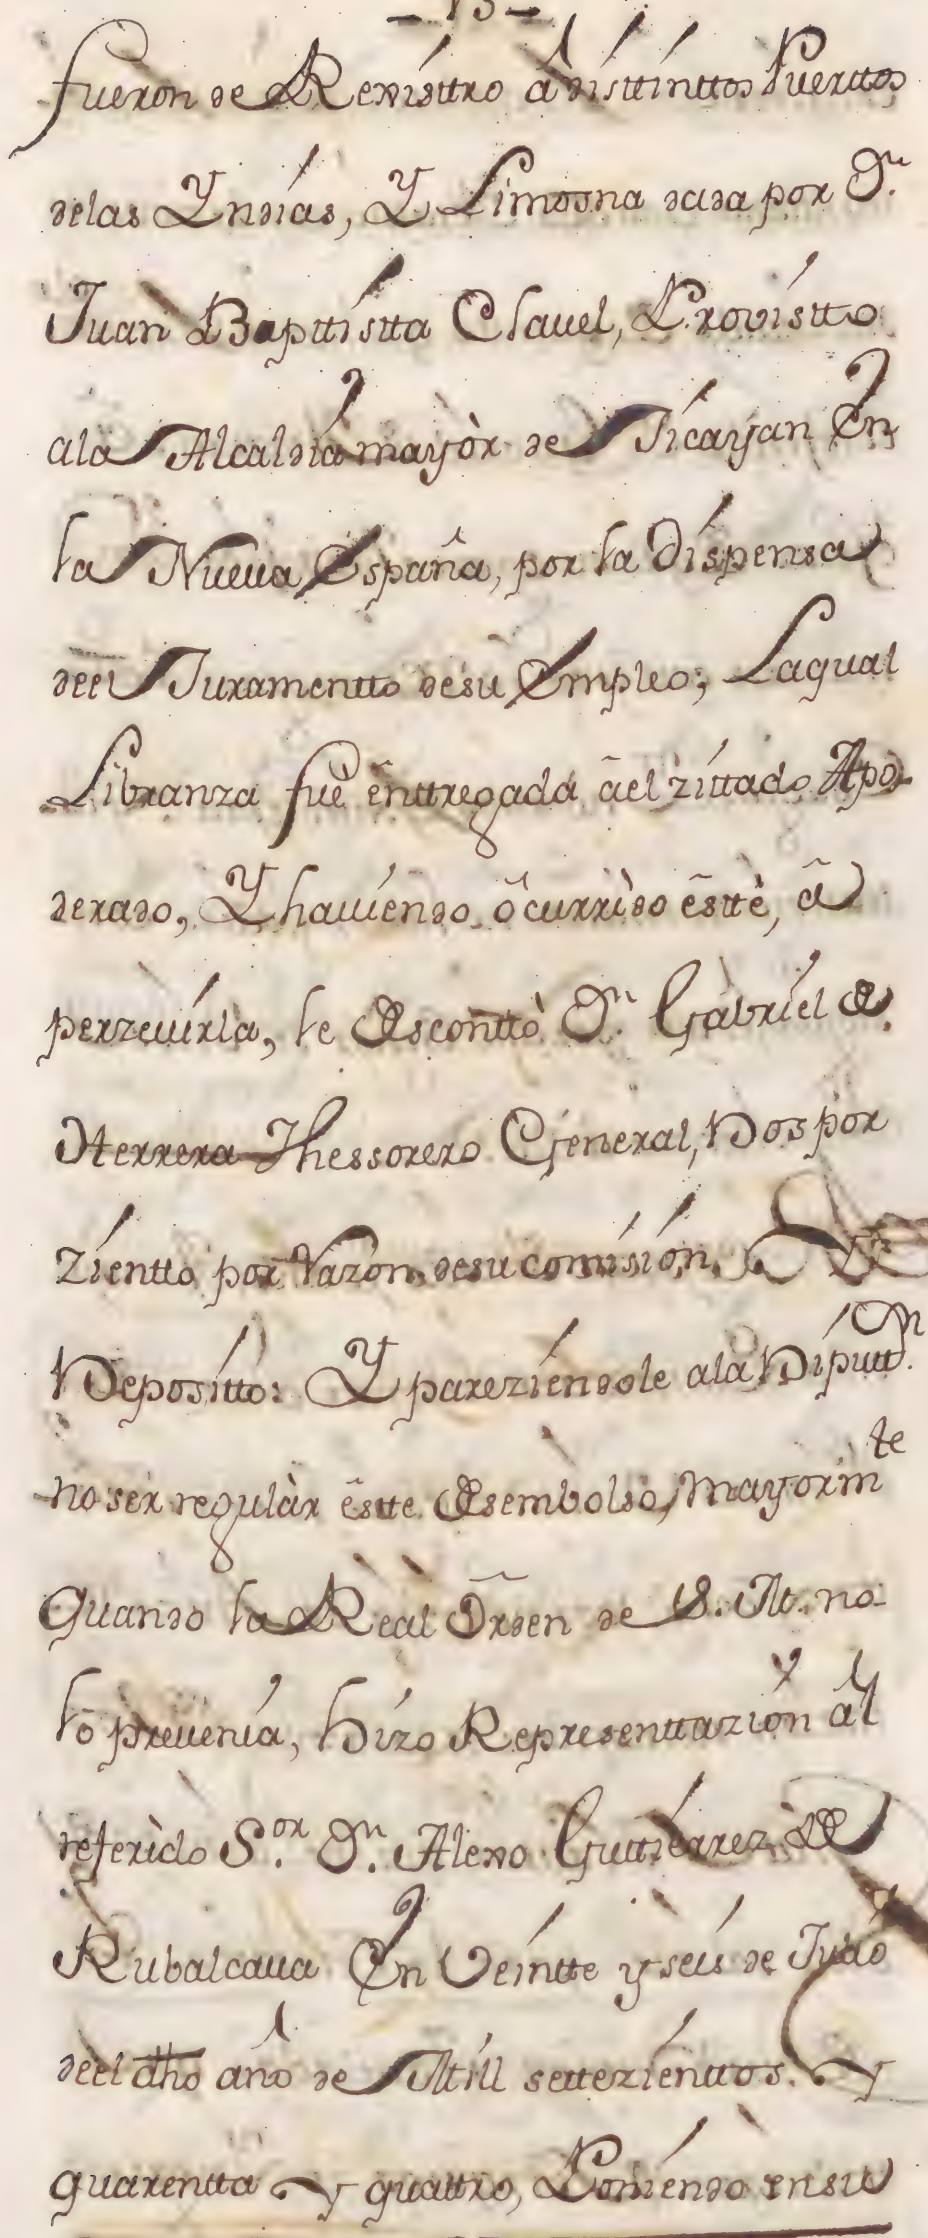 - 13 -
fueron de Rexisttro â disttinttos Puerttos
delas Yndias, Y Limosna dada por D.n
Juan Bapttistta Clauel, Provistto
ala Alcaldia mayòr de Jicayan En
la Nueua España, por la Dispensa
deel Juramentto desu Empleo; Laqual
Libranza fuè êntregada âel zittado Apo-
derado, Y hauiendo ôcurrido êsttè, â
perzeuirla, le Desconttò D.n Gabriel de
Herrera Thessorero General, Dos por
Zientto por razon desu comisión, Y
Deposítto: Y pareziendole ala Diputt.on
no ser regulàr êstte Desembolso, Mayorm.te
Quando la Real Ôrden de S. M. no
lo preuenia, hizo Representtazion âl
referido S.or D.n Alexo Guttierrez de
Rubalcaua En Veintte y seis de Julio
deel dho año de Mill settezienttos y
quarentta y quattro, Poniendo en su